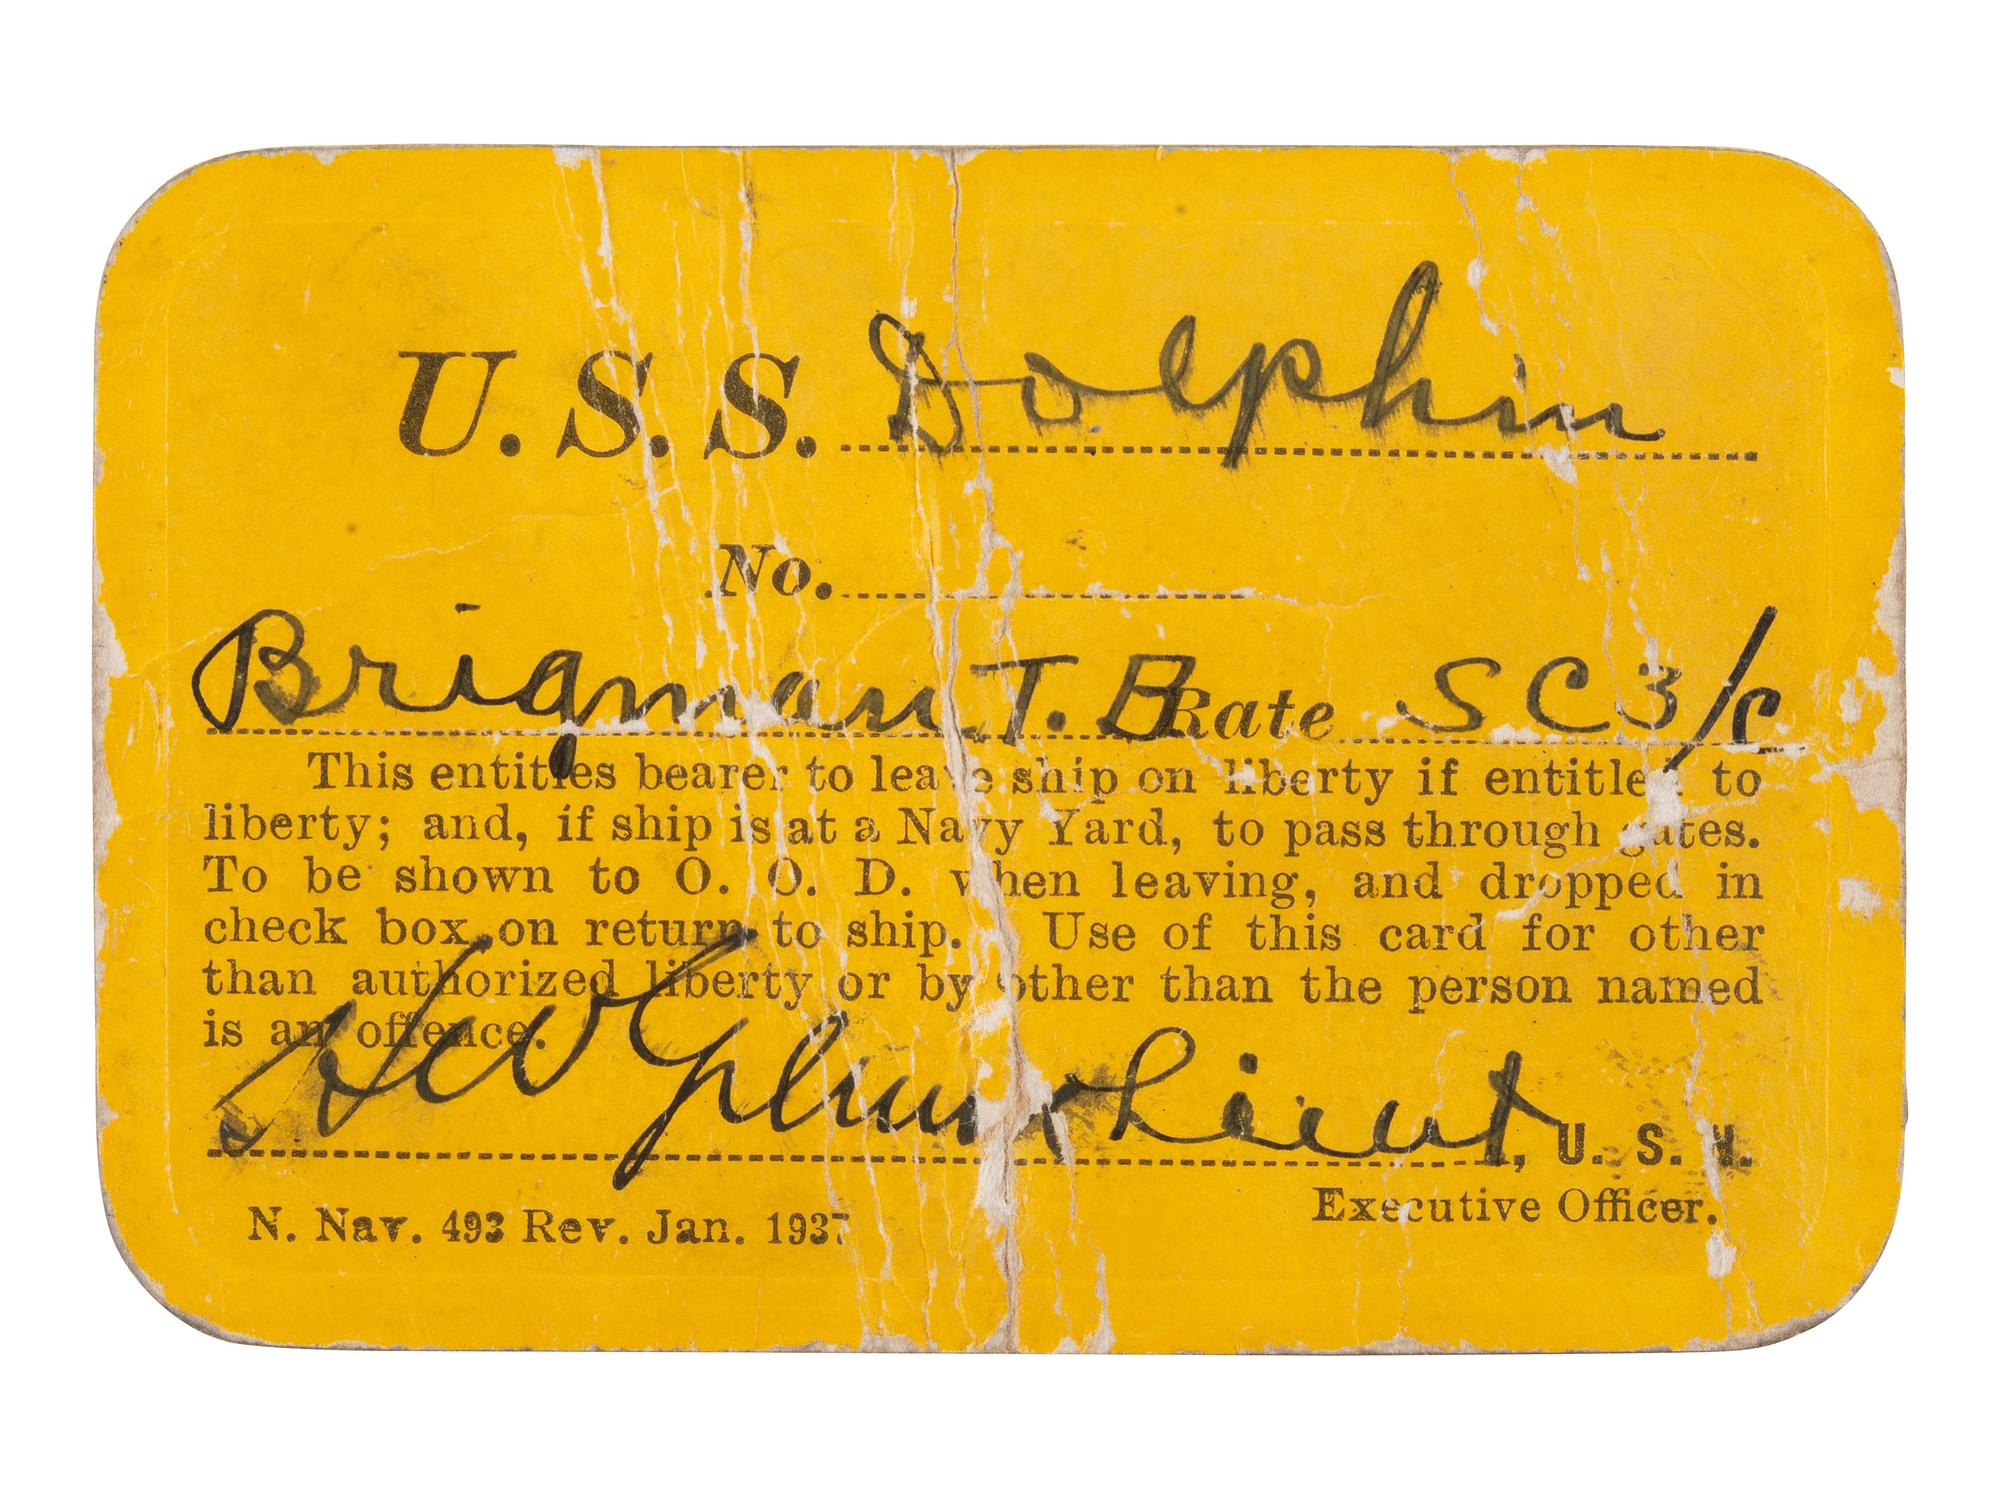 U.S.S. Dolphin
No.
Brigman T. B. Rate SC3/c
This entitles bearer to leave ship on liberty if entitled to
liberty; and, if ship is at a Navy Yard, to pass through gates.
To be shown to O. O. D. when leaving, and dropped in
check box on return to ship. Use of this card for other
than authorized liberty or by other than the person named
is an offence.
Lieut, U. S. N.
Executive Officer.
N. Nav. 493 Rev. Jan. 1937